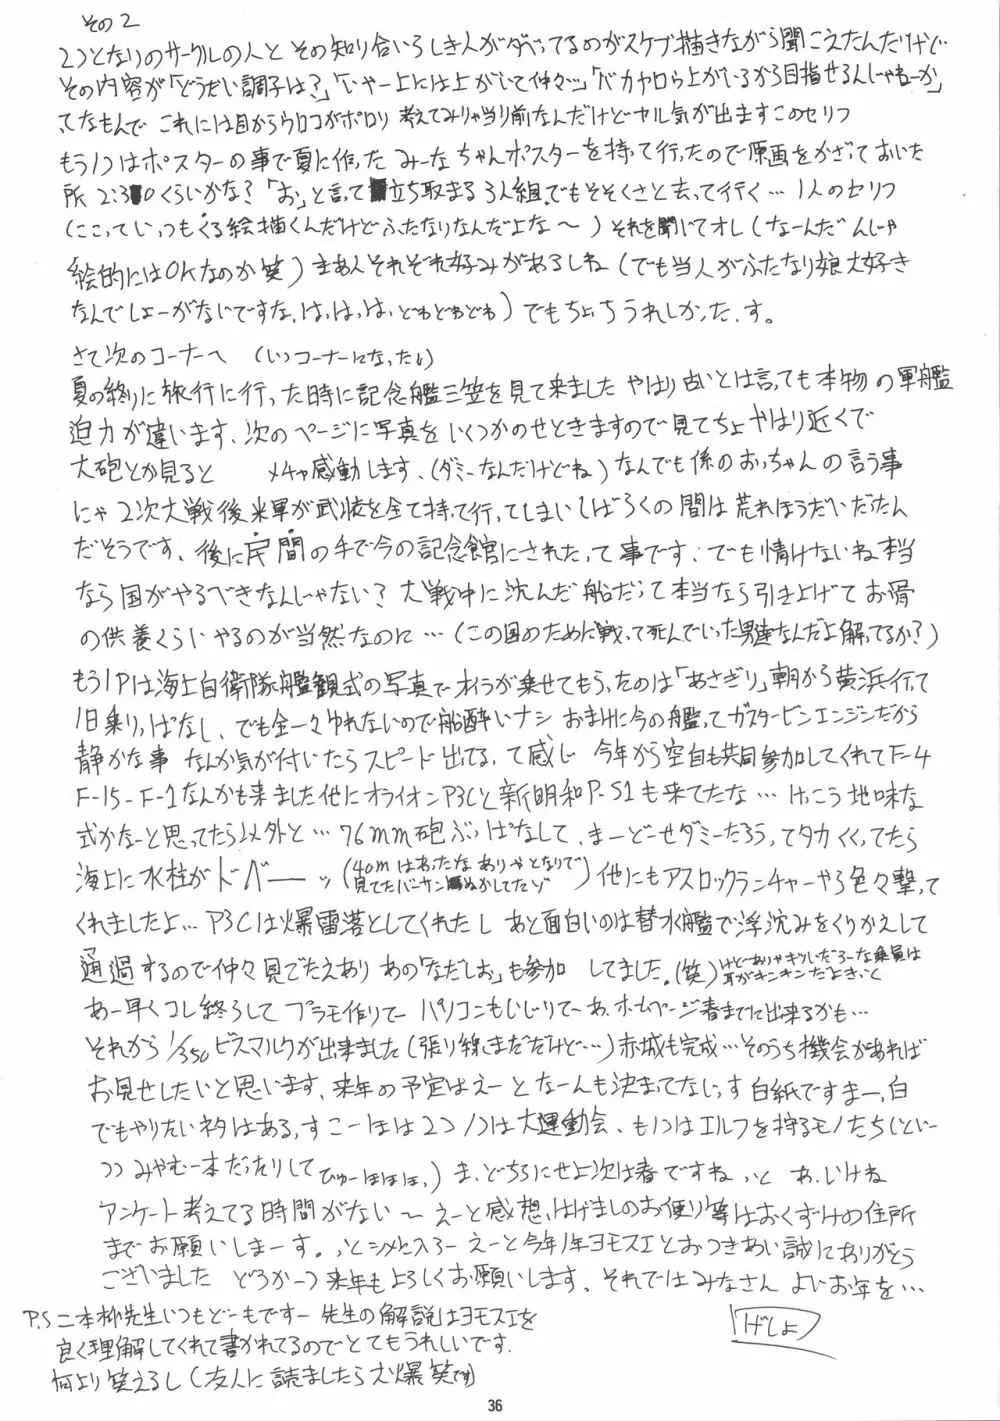 その2
2つとなりのサークルの人とその知り合いろしき人がダベってるのがスケブ描きながら聞こえたんだけど
その内容が「どうだい調子は?」「いやー上には上がいて仲々…」「バカヤロウ上がいるから目指せるんじゃねーか」
てなもんで これには目からウロコがポロリ 考えてみりゃ当り前なんだけどヤル気が出ますこのセリフ
もう1つはポスターの事で夏に作った みーなちゃんポスターを持って行ったので原画をかざっておいた
所 2:30くらいかな?「お」と言って立ち取まる3人組。でもそそくさと去って行く…1人のセリフ
(ここっていっつもくる絵描くんだけどふたなりなんだよな〜) それを聞いてオレ (なーんだ んじゃ
絵的にはOKなのか笑) まあそれぞれ好みがあるしね (でも当人がふたなり娘大好き
なんでしょーがないですな、はっはっは、どわどわどわ) でもちょっちうれしかったっす。
さて次のコーナーへ (いつコーナーになったい)
夏の終りに旅行に行った時に記念艦三笠を見て来ました やはり古いとは言っても本物の軍艦
迫力が違います、次のページに写真をいくつかのせときますので見てちょ やはり近くで
大砲とか見ると メチャ感動します、(ダミーなんだけどね) なんでも係のおっちゃんの言う事
にゃ 2次大戦後米軍が武装を全て持って行ってしまいしばらくの間は荒れほうだいだったん
だそうです、後に民間の手で今の記念館にされたって事です、でも情けないね本当
なら国がやるべきなんじゃない? 大戦中に沈んだ船だって本当なら引き上げてお骨
の供養くらいやるのが当然なのに…(この国のために戦って死んでいった男達なんだよ解ってるか?)
もう1Pは海上自衛隊艦観式の写真でオイラが乗せてもらったのは「あさぎり」朝から横浜行って
1日乗りっぱなし、でも全々ゆれないので船酔いナシ おまけに今の艦ってガスタービンエンジンだから
静かな事 なんか気が付いたらスピード出てるって感じ 今年から空自も共同参加してくれてF-4
F-15-F-1なんかも来ました他にオライオンP3Cと新明和P-S1も来てたな… けっこう地味な
式かなーと思ってたら以外と…76mm砲ぶっぱなして、まーどーせダミーだろうってタカくくってたら
海上に水柱がドバーーッ (40mはあったなありゃとなりで
見てたバーサンぬかしてたゾ) 他にもアスロックランチャーやら色々撃って
くれましたよ… P3Cは爆雷落としてくれたし あと面白いのは替水艦で浮沈みをくりかえして
通過するので仲々見ごたえあり あの「なだしお」も参加してました。(笑) (けどありゃぎりぎりいだろーな乗員は
耳がキンキンだよきっと
あー早くコレ終らして プラモ作りてー パソコンもいじりてーあ、ホームページ春までに出来るかも…
それから 1/350ビスマルクが出来ました (張り線まだだけど…) 赤城も完成…そのうち機会があれば
お見せしたいと思います、来年の予定はえーとなーんも決まってないっす 白紙ですまーっ白
でもやりたいネタはあるっすこーほは2つ 1つは大運動会、も1つはエルフを狩るモノたち(とい
つつみやむー本だったりして ひゅーほほほっ) ま、どちらにせよ次は春ですねっと あ、いけね
アンケート考えてる時間がない〜 えーと感想、はげましのお便り等はおくずけの住所
までお願いしまーす。っとシメに入ろー えーと今年1年ヨモスエとおつきあい誠にありがとう
ございました どうか一つ来年もよろしくお願いします、それではみなさん よいお年を…
げしょ
P.S 二本柳先生いつもどーもですー 先生の解説はヨモスエを
良く理解してくれて書かれてるのでとてもうれしいです。
何より笑えるし (友人に読ましたら大爆笑です)
36